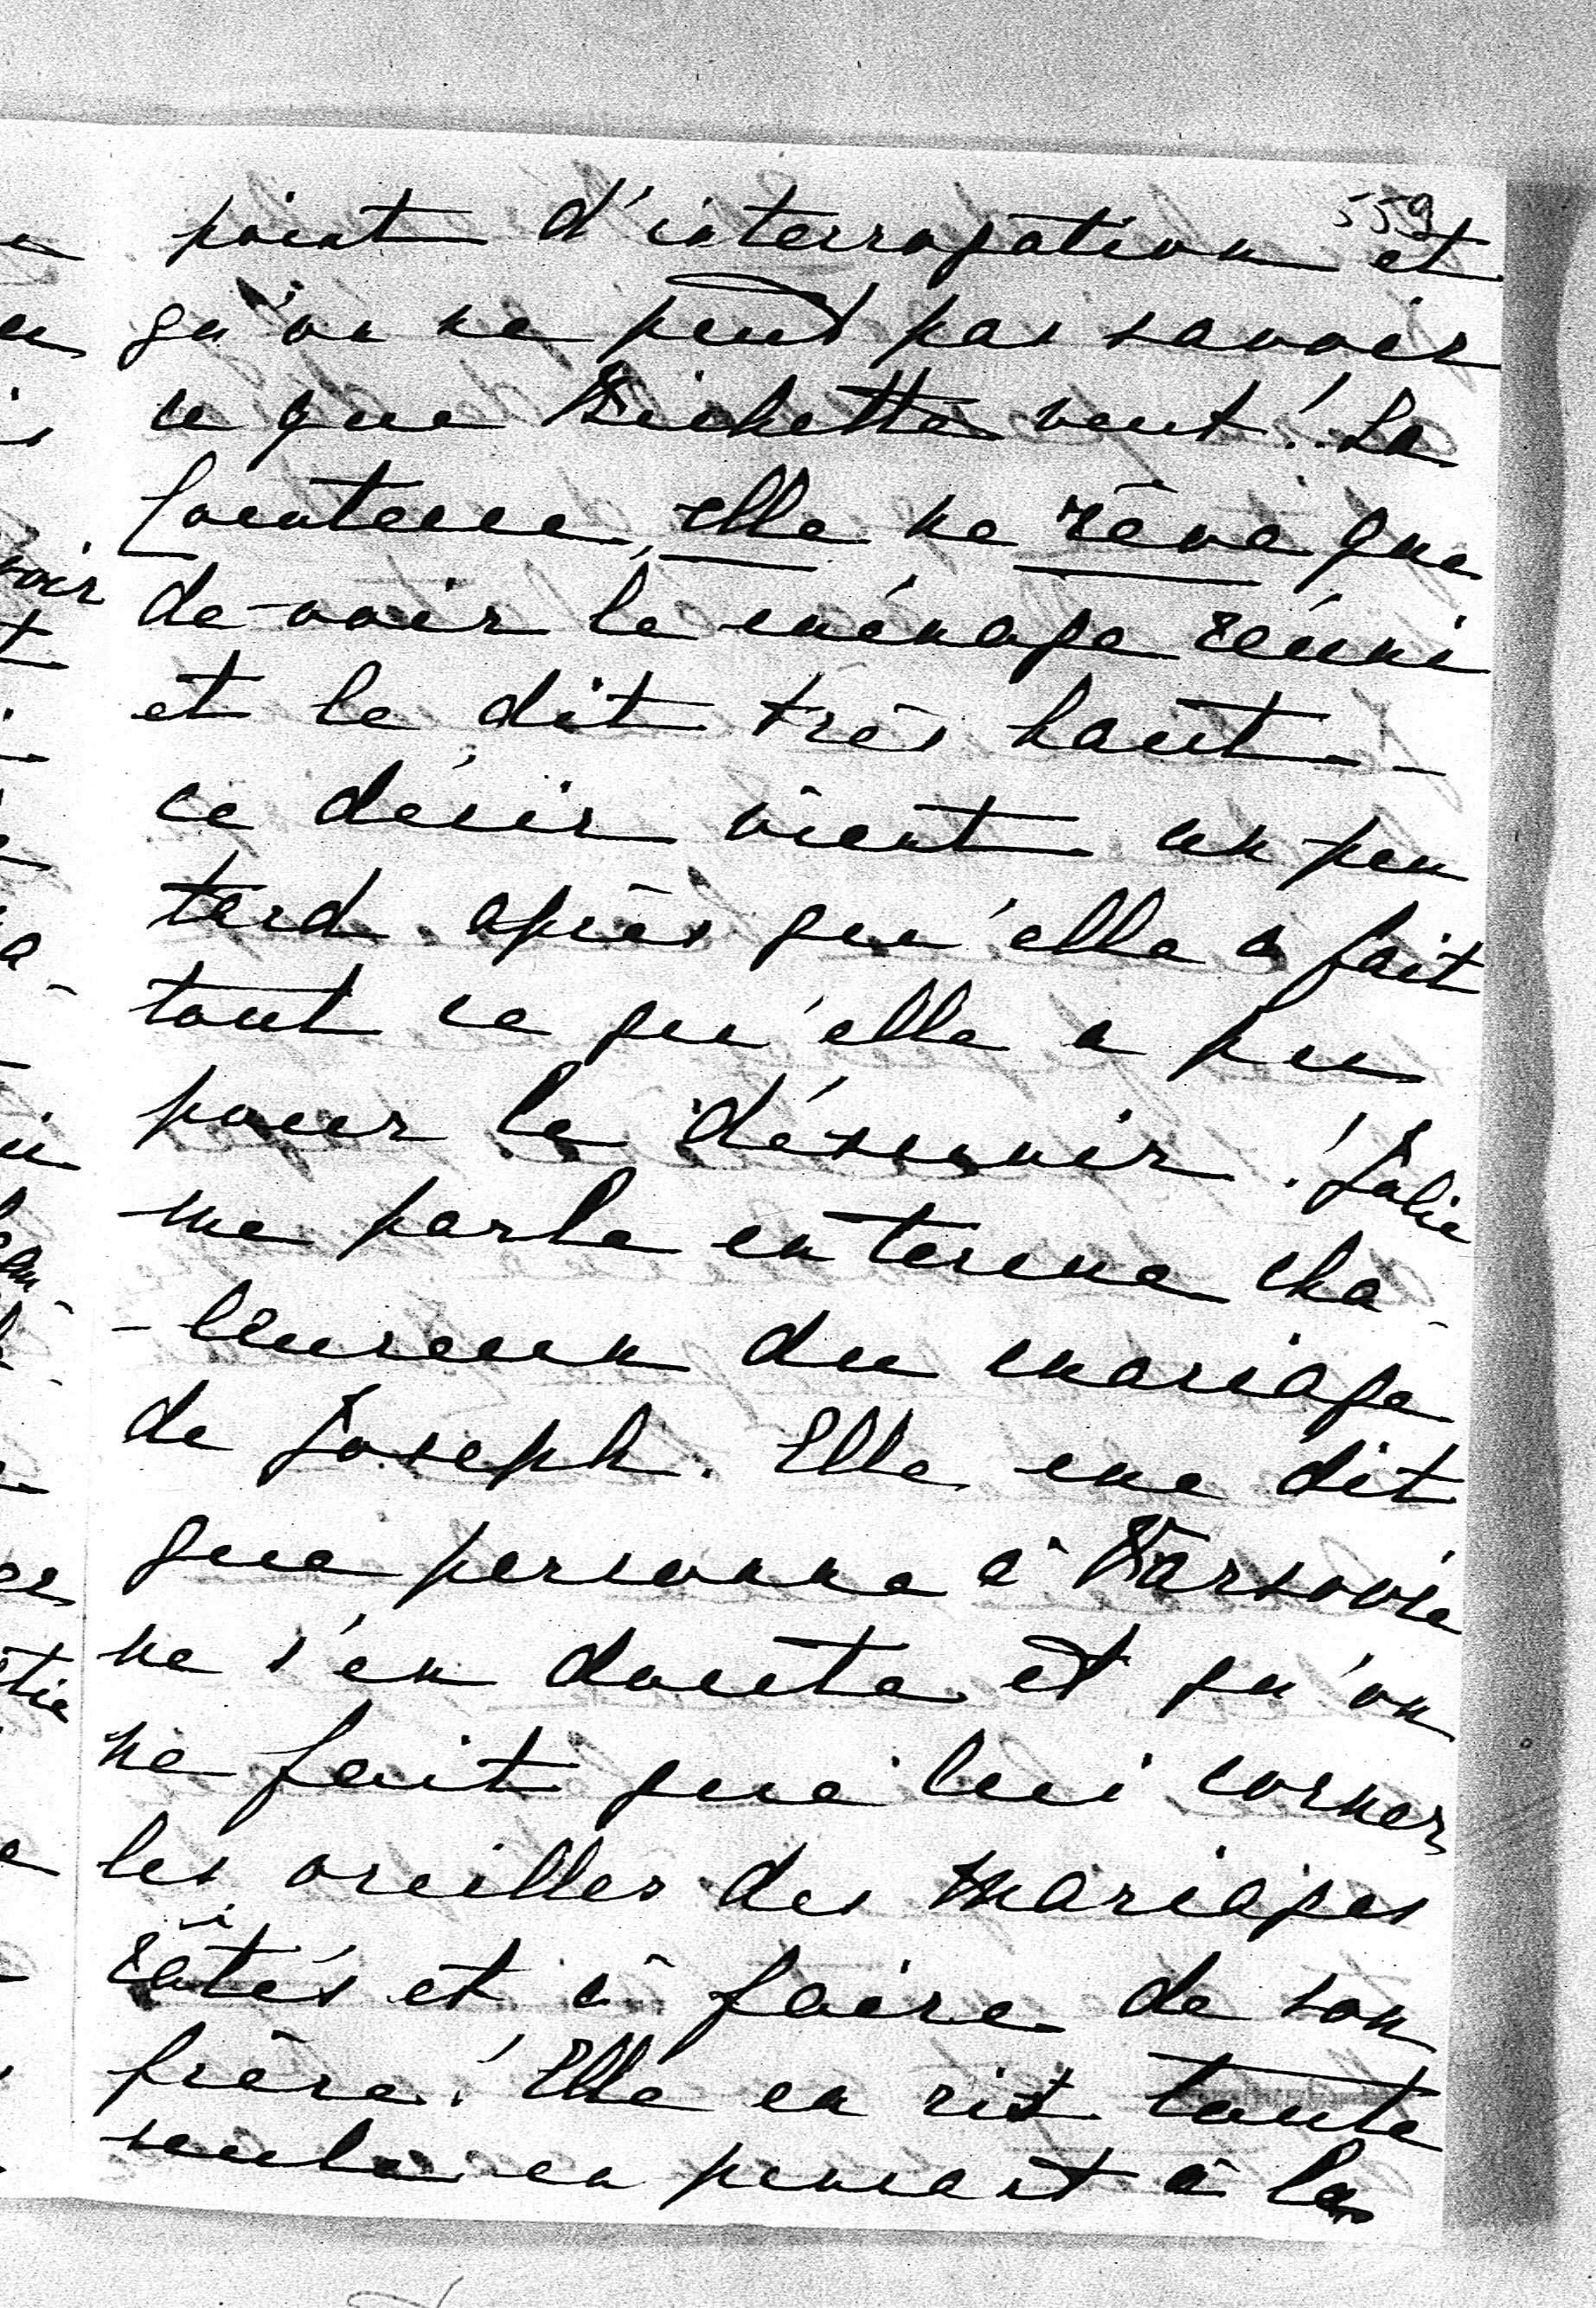 559
point d'interrogation et
qu'on ne peut pas savoir
ce que Bichette veut! La
Comtesse, elle ne rêve que
de voir le ménage réuni
et le dit très haut -
ce désir vient un peu
tard après qu'elle a fait
tout ce qu'elle a pu
pour le désunir! Julie
me parle en terme cha-
-leureux du mariage
de Joseph. Elle me dit
que personne à Varsovie
ne s'en doute et qu'on
ne fait que lui corner
les oreilles des mariages
ratés et à faire de son
frère! Elle en rit toute
seule en pensant à la